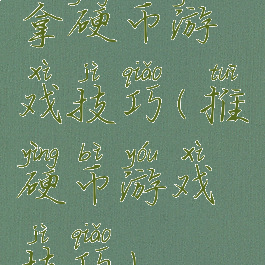 拿硬币游
xì jì qiǎo tuī
戏技巧(推
yìng bì yóu xì
硬币游戏
jì qiǎo
技巧)